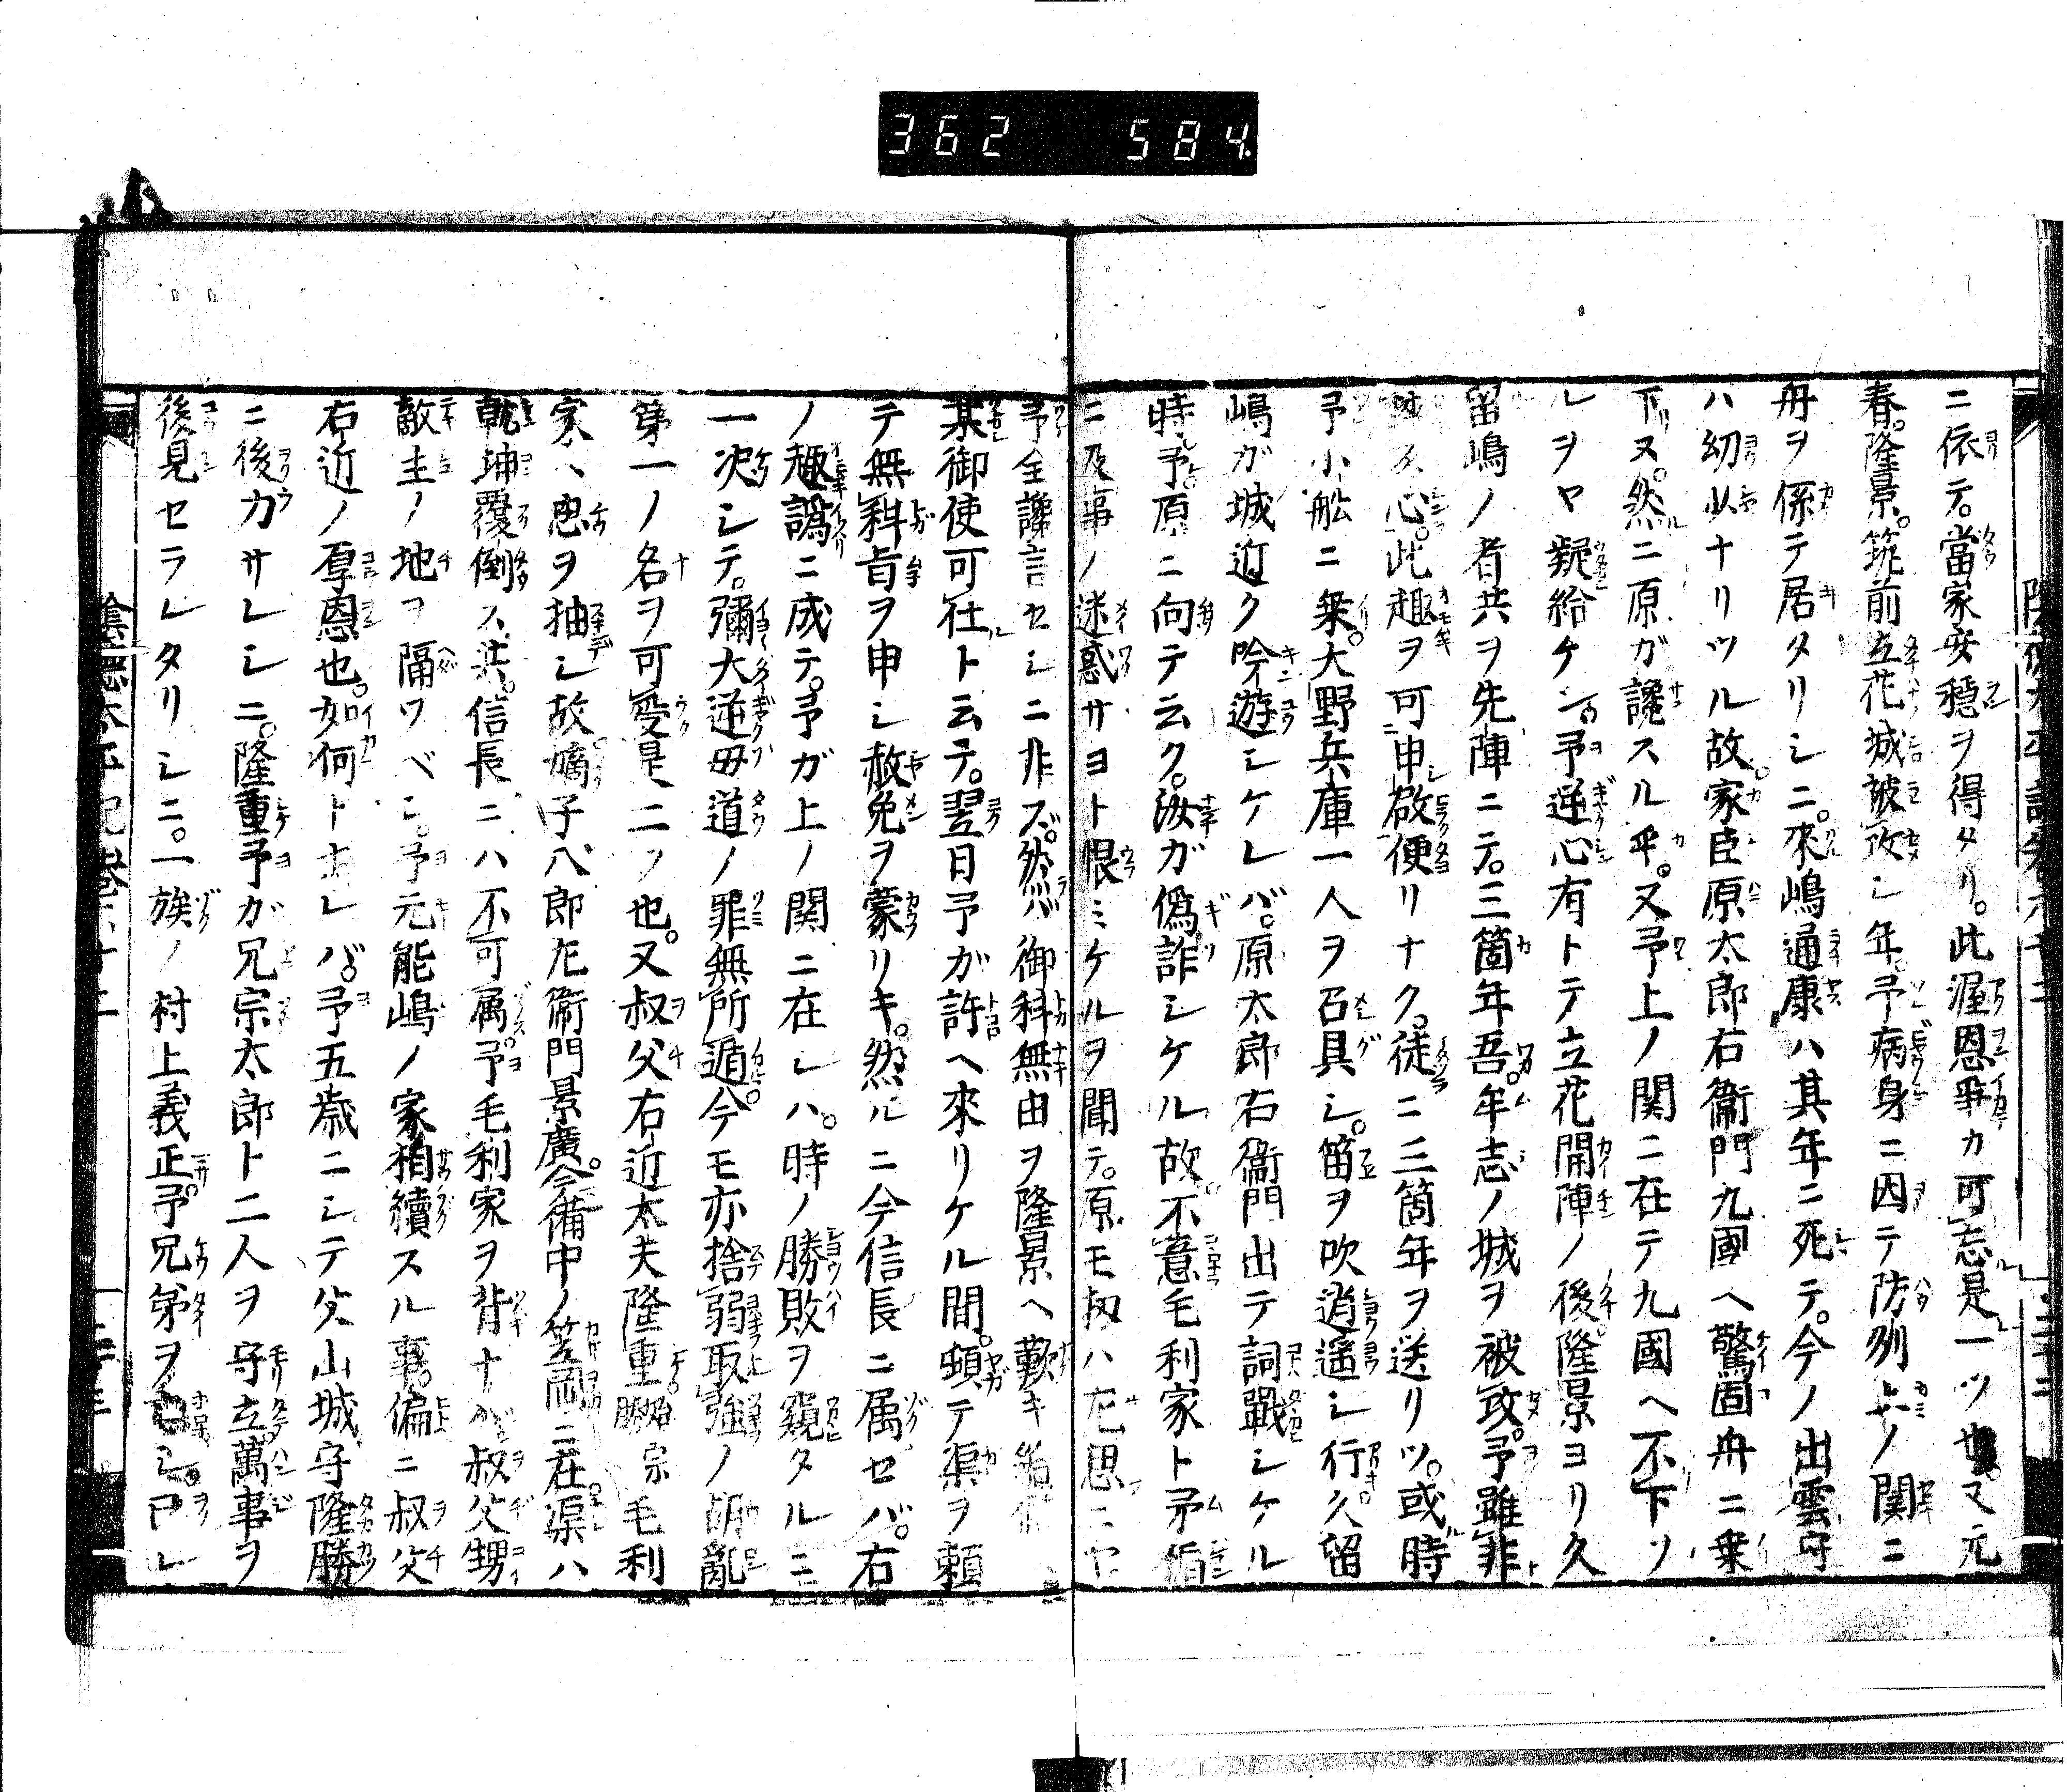 362 584
ニ依テ。當家安穩ヲ得タリ。此渥恩爭カ可忘是一ツ也。又元
春。隆景。筑前立花城被攻シ年。予病身ニ因テ防州上ノ関ニ
舟ヲ係テ居タリシニ。來嶋通康ハ其年ニ死テ。今ノ出雲守
ハ幼少ナリツル故。家臣原太郎右衞門九國ヘ驚固舟ニ乗
下ヌ。然ニ原ガ讒スル乎。又予上ノ関ニ在テ九國ヘ不下ツ
ルヲヤ疑給ケン。予逆心有トテ立花開陣ノ後。隆景ヨリ久
留嶋ノ者共ヲ先陣ニテ。三箇年吾。牟志ノ城ヲ被攻。予雖非
心。此趣ヲ可申啟便リナク。徒ニ三箇年ヲ送リツ。或時
予小舩ニ乗。大野兵庫一人ヲ召具シ。笛ヲ吹逍遥シ行。久留
嶋ガ城近ク吟遊シケレバ。原太郎右衞門出テ詞戰シケル
時。予原ニ向テ云ク。汝ガ僞詐シケル故。不意毛利家ト矛楯
ニ及事ノ迷惑サヨト恨ミケルヲ聞テ。原モ扨ハ左思ニヤ
予全讒言セシニ非ズ。然バ御科無由ヲ隆景ヘ歎キ
某御使可仕ト云テ。翌日予ガ許ヘ來リケル間。頓テ渠ヲ頼
テ無科旨ヲ申シ赦免ヲ蒙リキ。然ルニ今信長ニ属セバ。右
ノ趣謌ニ成テ。予ガ上ノ関ニ在シハ。時ノ勝敗ヲ窺タルニ
一决シテ。彌大逆毋道ノ罪無所遁。今モ亦捨弱取強ノ胡亂
第一ノ名ヲ可受是二ツ也。又叔父右近太夫隆重 宗毛利
家ヘ忠ヲ抽シ故。嫡子八郎左衞門景廣。今備中ノ笠岡ニ在。渠ハ
乾坤覆倒ス共。信長ニハ不可属。予毛利家ヲ背ナバ叔父甥
敵圭ノ地ヲ隔ツベシ。予元能嶋ノ家相續スル事。偏ニ叔父
右近ノ厚恩也。如何トナレバ。予五歳ニシテ父山城守隆勝
ニ後カサレシニ。隆重予ガ兄宗太郎ト二人ヲ守立。萬事ヲ
後見セラレタリシニ。一族ノ村上義正。予兄弟ヲ シ。己レ